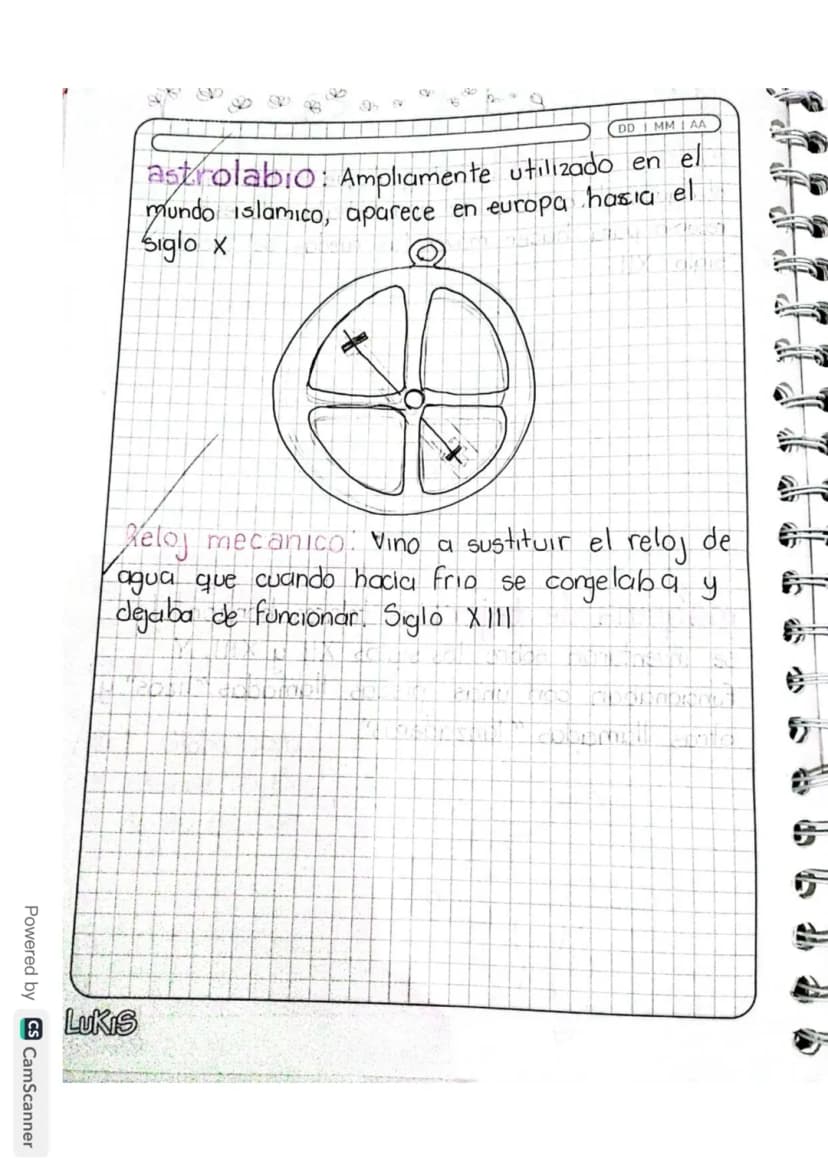 DD | MM | AA
astrolabio: Ampliamente utilizado en el
mundo islamico, aparece en europa hasia el
siglo X
Reloj mecanico: Vino a sustituir el reloj de
agua que cuando hacia frio se congelaba y
dejaba de funcionar. Siglo XIII
LUKIS
Powered by CS CamScanner